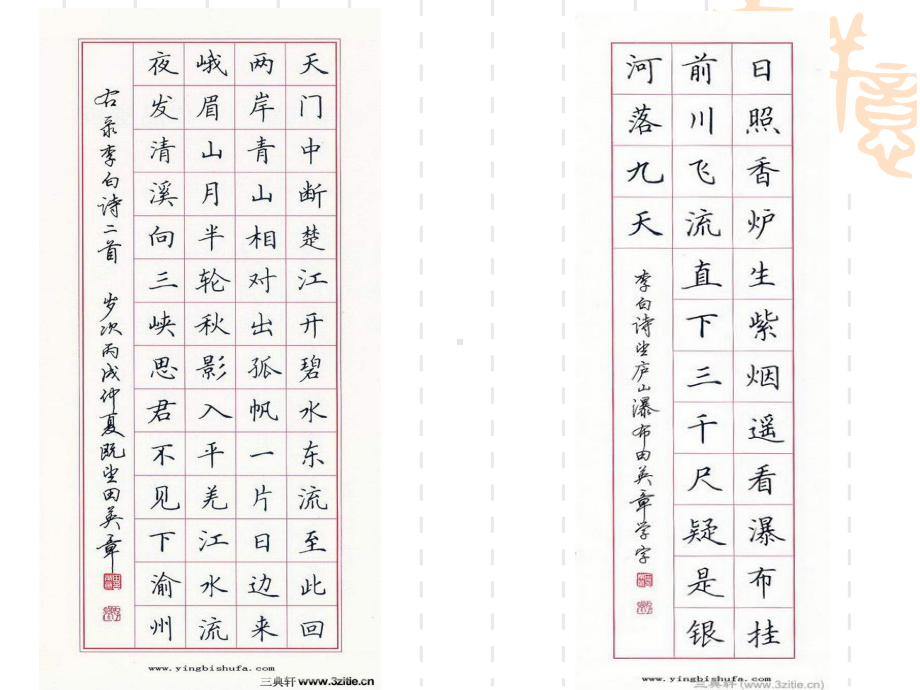 天门中断楚江开碧水东流至此回
两岸青山相对出孤帆一片日边来
峨眉山月半轮秋影入平羌江水流
夜发清溪向三峡思君不见下渝州
右录李白诗二首 岁次丙戌仲夏既望田英章
www.yingbishufa.com
三典轩 www.3zitie.cn
日照香炉生紫烟遥看瀑布挂
前川飞流直下三千尺疑是银
河落九天
李白诗望庐山瀑布田英章学字
www.yingbishufa.com
三典轩 (www.3zitie.cn)